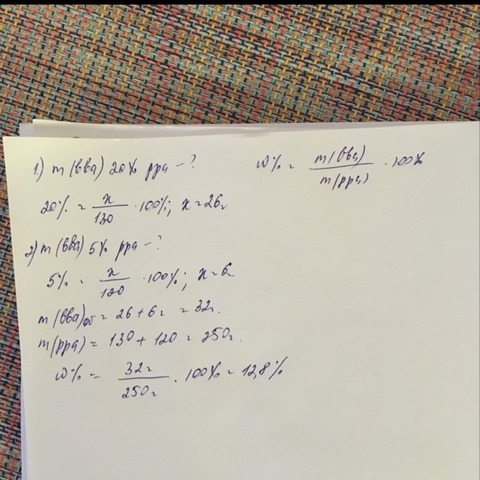 1) m(вва) 20% рра - ?
w% = m(вва) / m(рра) · 100%
20% = x / 130 · 100%; x = 26г
2) m(вва) 5% рра - ?
5% = x / 120 · 100%; x = 6г
m(вва)об = 26 + 6г = 32г.
m(рра) = 130 + 120 = 250г.
w% = 32г / 250г · 100% = 12,8%